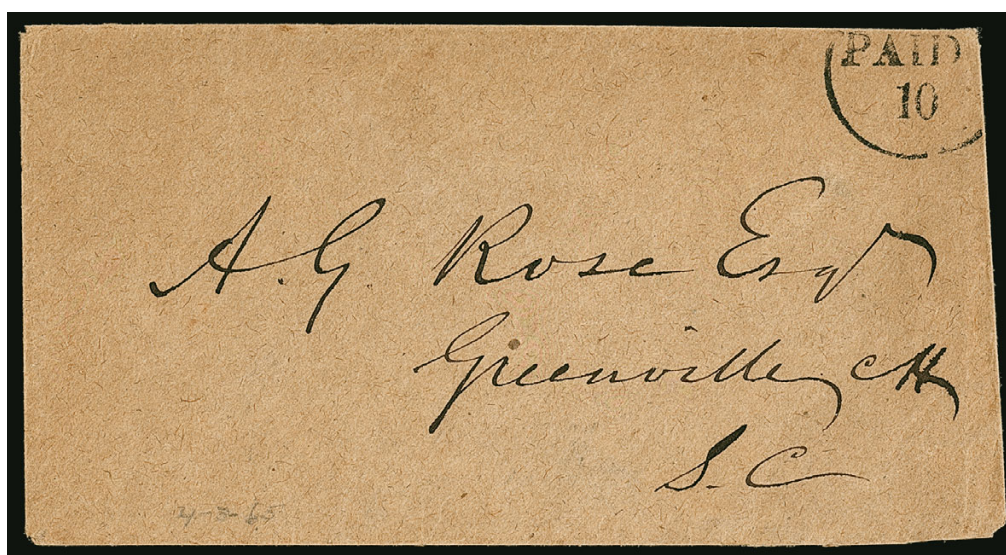 PAID
10
A. G Rose Esqr
Greenville, CH
S. C
4-3-65